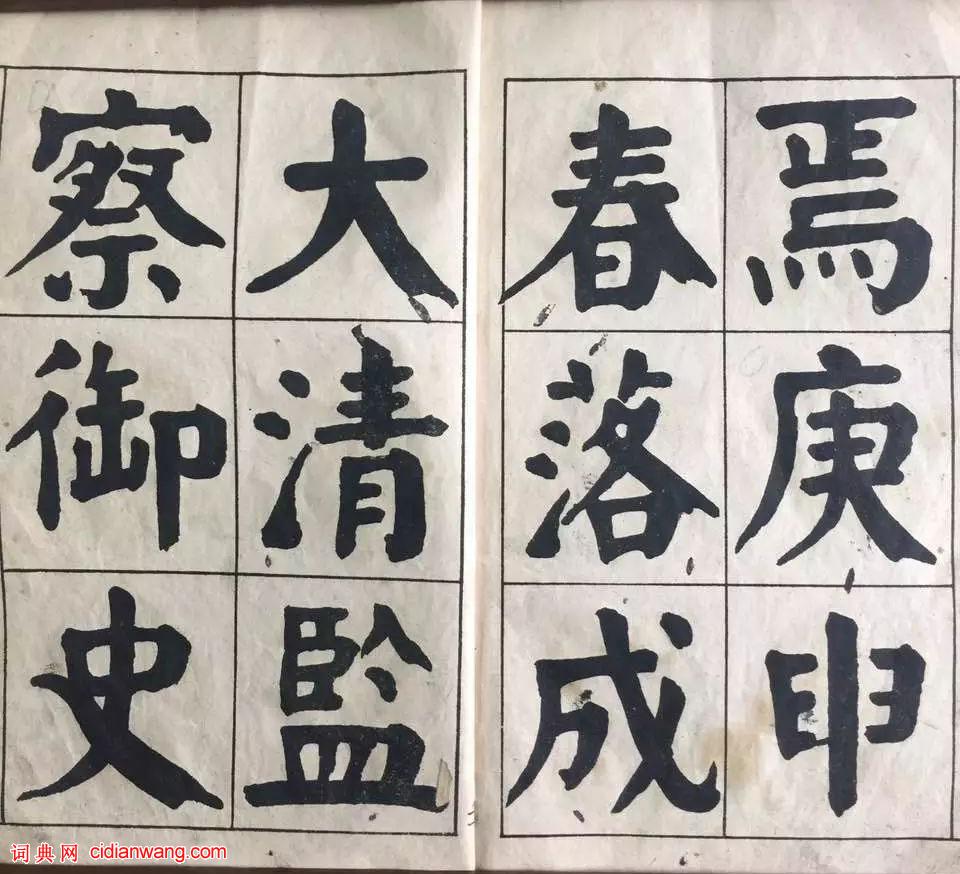 焉庚申
春落成
大清監
察御史
词典网 cidianwang.com